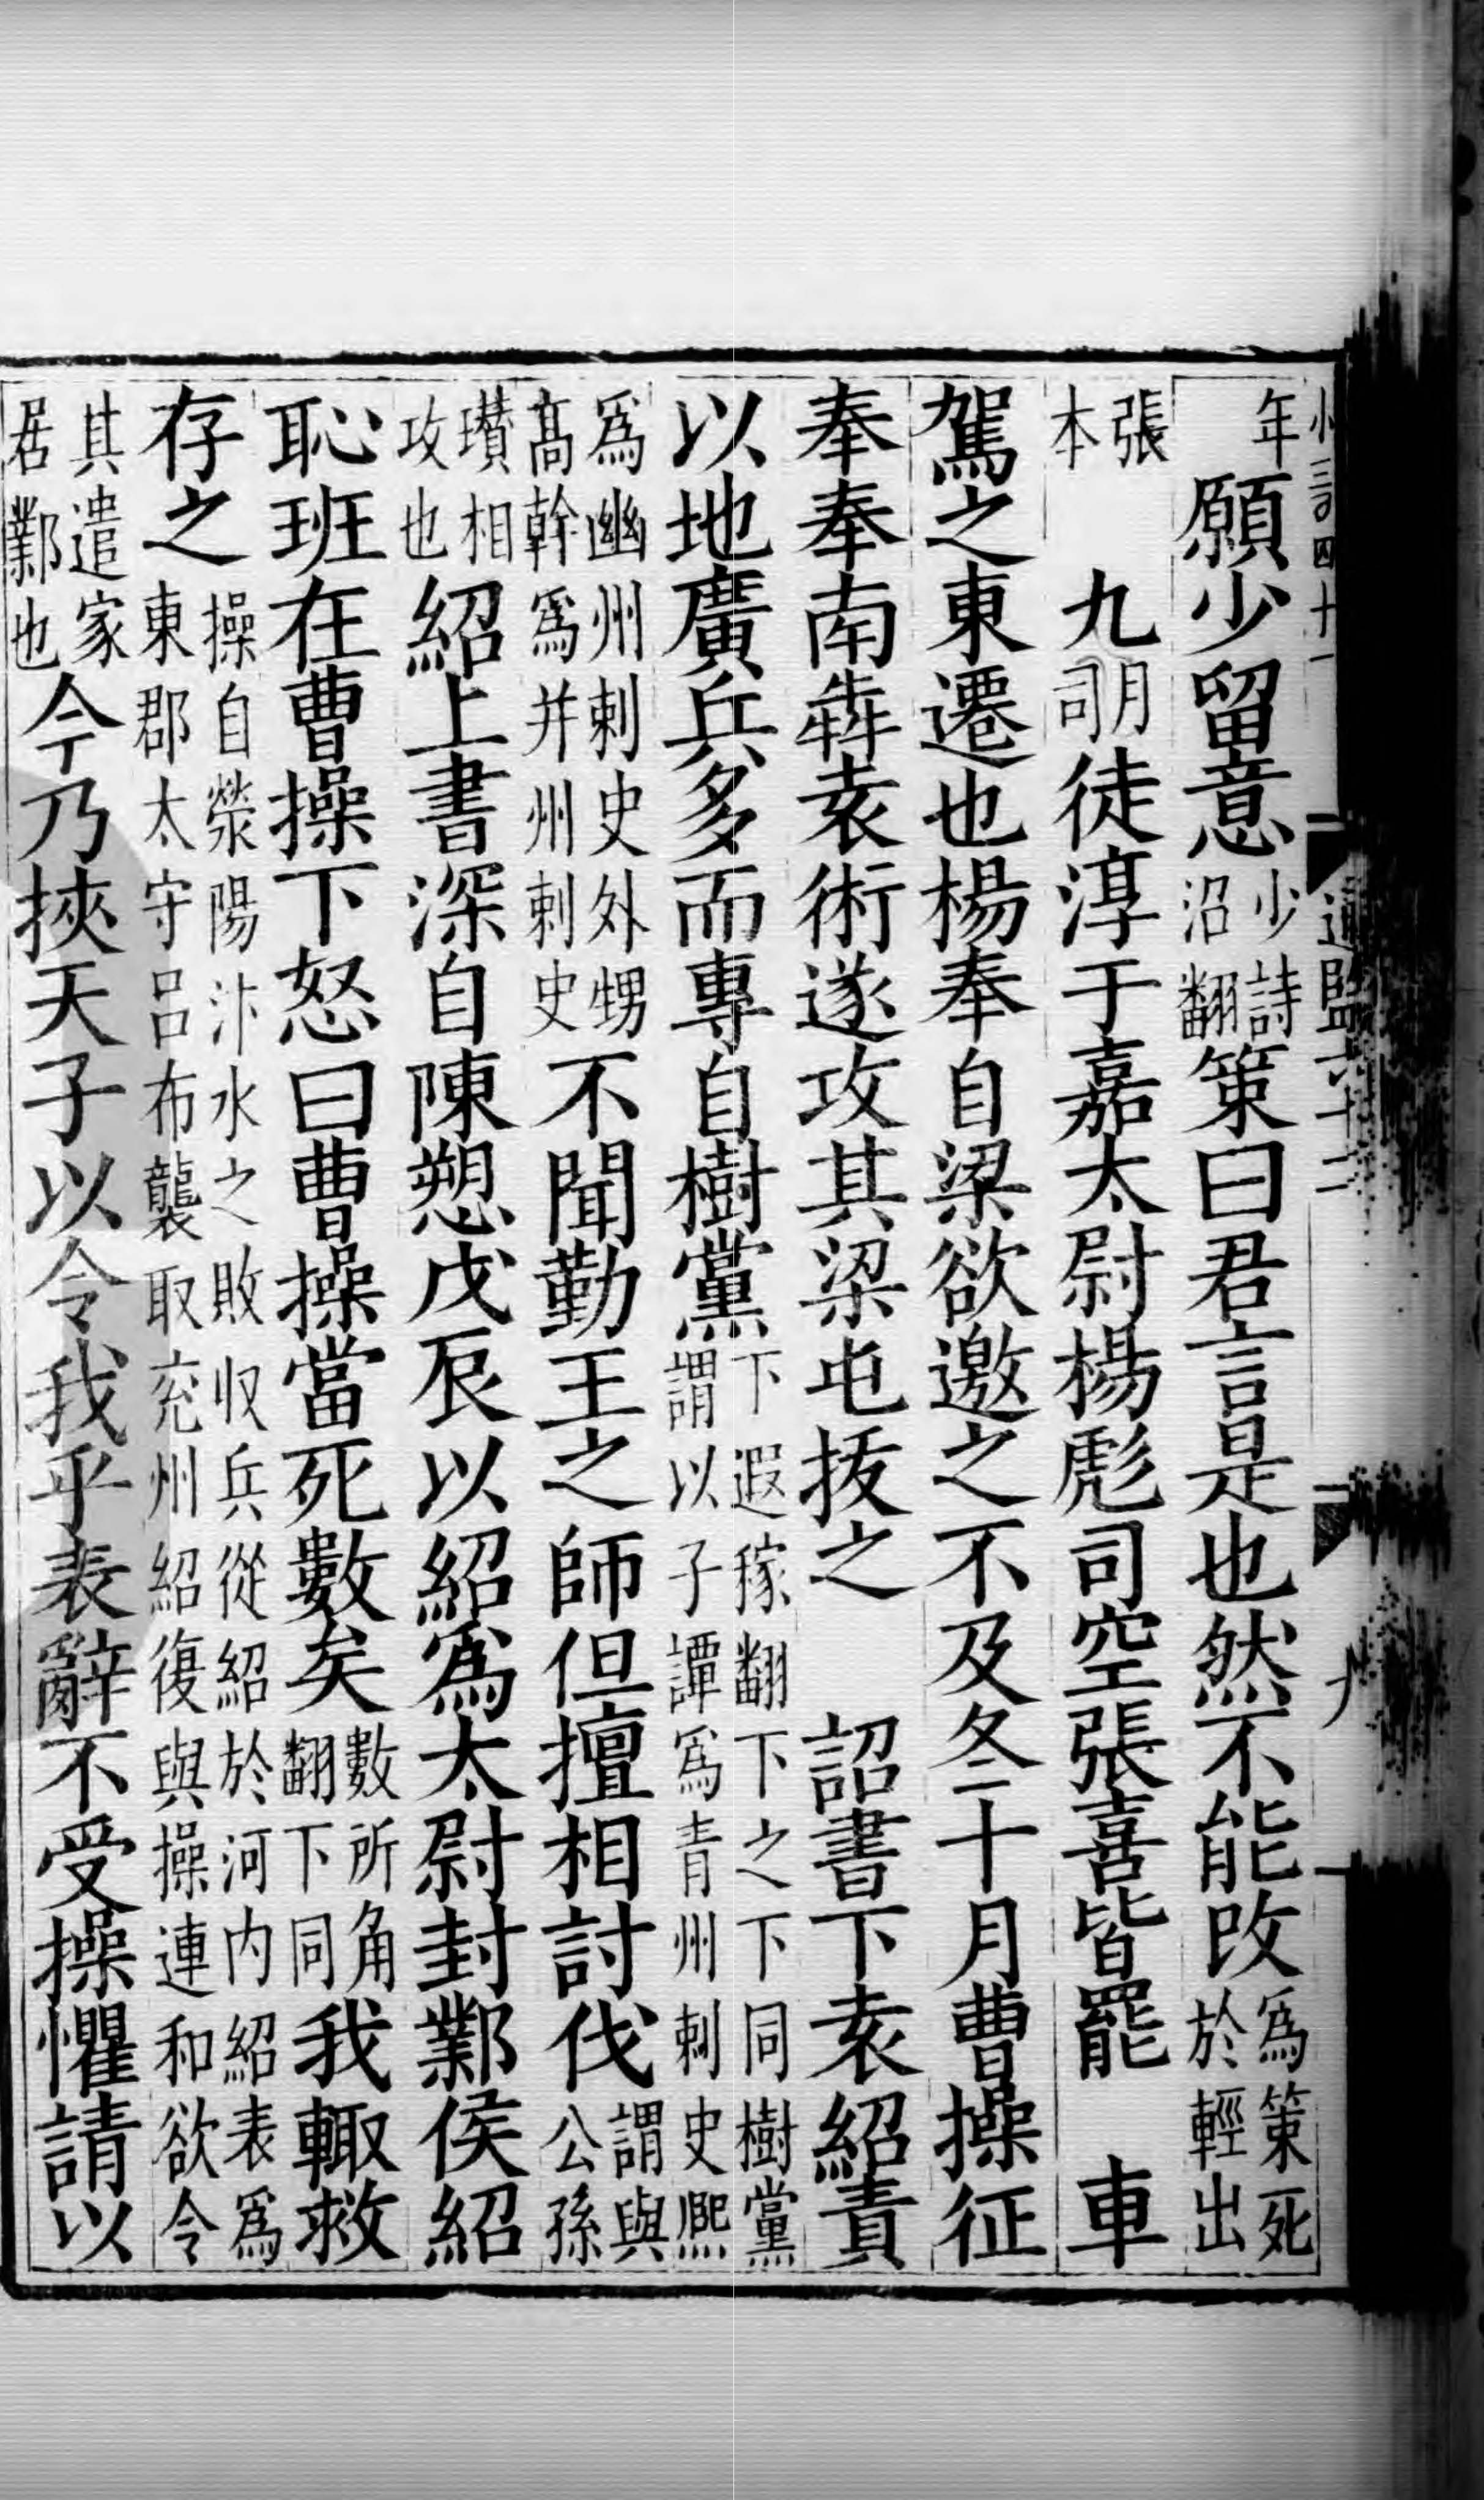 年願少留意少詩沼翻策曰君言是也然不能改爲策死於輕出
張本九月司徒淳于嘉太尉楊彪司空張喜皆罷車
駕之東遷也楊奉自梁欲邀之不及冬十月曹操征
奉奉南犇袁術遂攻其梁屯拔之詔書下袁紹責
以地廣兵多而專自樹黨下遐稼翻下之下同樹黨謂以子譚爲青州刺史熙
爲幽州刺史外甥高幹爲并州刺史不聞勤王之師但擅相討伐謂與公孫
瓚相攻也紹上書深自陳愬戊辰以紹爲太尉封鄴侯紹
恥班在曹操下怒曰曹操當死數矣數所角翻下同我輙救
存之操自滎陽汴水之敗收兵從紹於河内紹表爲東郡太守呂布襲取兖州紹復與操連和欲令
其遣家居鄴也今乃挾天子以令我乎表辭不受操懼請以